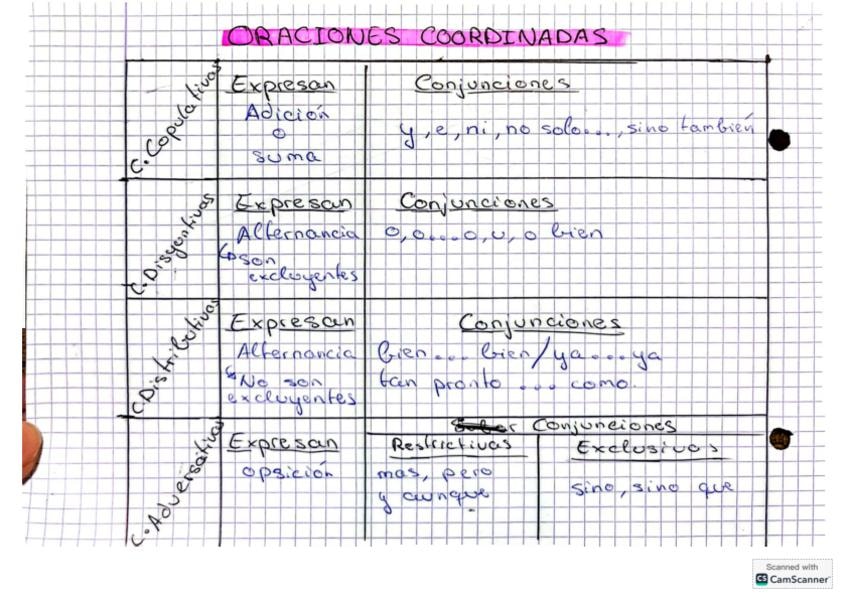 ORACIONES COORDINADAS
C. Copulativas
Expresan
Adición
o
suma
Conjunciones
y, e, ni, no solo..., sino también
C. Disyentivas
Expresan
Alternancia
↳ son
excluyentes
Conjunciones
o, o....o, u, o bien
C. Distributivas
Expresan
Alternancia
↳ No son
excluyentes
Conjunciones
bien... bien / ya....ya
tan pronto ... como.
C. Adversativas
Expresan
opsición
Conjunciones
Restrictivas
mas, pero
y aunque
Exclusivas
sino, sino que
Scanned with
CS CamScanner